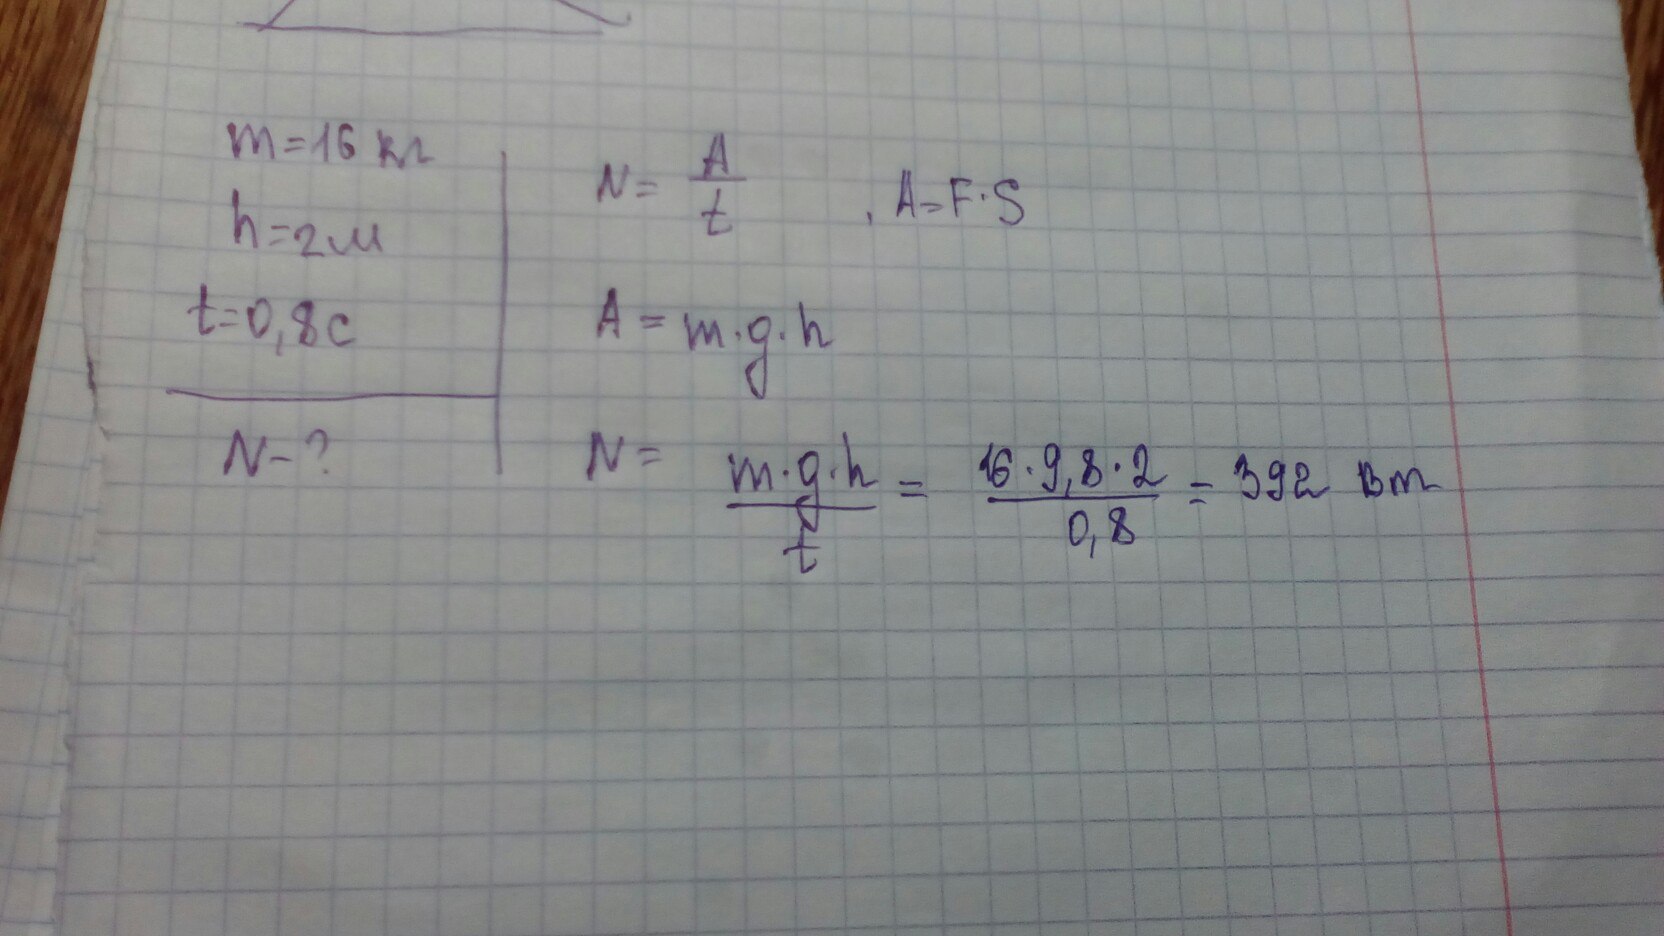 m=16 кг
h=2м
t=0,8с
N-?
N= A/t , A=F·S
A = m·g·h
N= m·g·h/t = 16·9,8·2/0,8 = 392 Вт